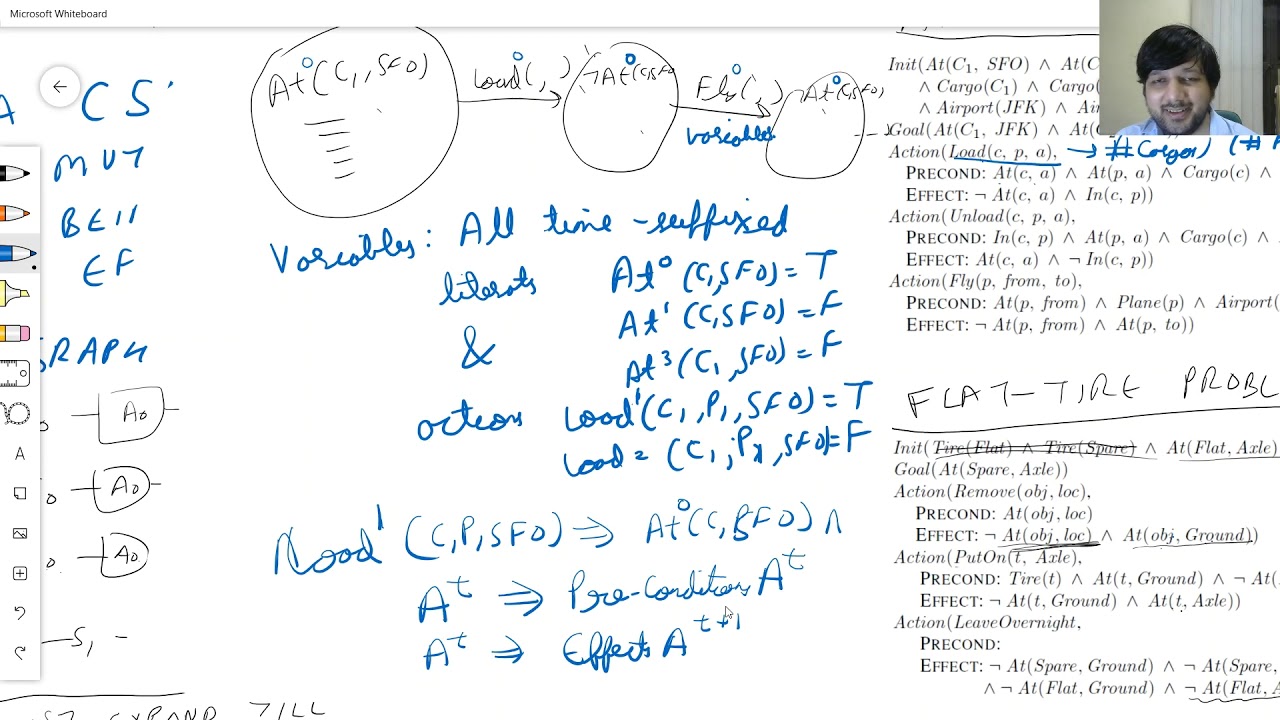 Microsoft Whiteboard
CS
MUT
BEH
EF
GRAPH
A0
A0
A0
S1 -
EXPAND TILL
At⁰(C1, SFO)
Load⁰( , )
¬At⁰(C1SFO
Fly⁰( , )
variables
¬At⁰(C1SFO)
Variables: All time-suffixed
literals
&
actions
At⁰ (C1SFO) = T
At¹ (C1SFO) = F
At³ (C1, SFO) = F
Load¹(C1, P1, SFO) = T
Load = (C1, P, SFO) = F
Load¹ (C1P1SFO) ⇒ At⁰(C1SFO) ∧
Aᵗ ⇒ Pre-Conditions Aᵗ
Aᵗ ⇒ Effects Aᵗ⁺¹
Init(At(C1, SFO) ∧ At(C
∧ Cargo(C1) ∧ Cargo(
∧ Airport(JFK) ∧ Ai
Goal(At(C1, JFK) ∧ At(
Action(Load(c, p, a), → #Cargos) (#
PRECOND: At(c, a) ∧ At(p, a) ∧ Cargo(c) ∧
EFFECT: ¬ At(c, a) ∧ In(c, p))
Action(Unload(c, p, a),
PRECOND: In(c, p) ∧ At(p, a) ∧ Cargo(c) ∧
EFFECT: At(c, a) ∧ ¬ In(c, p))
Action(Fly(p, from, to),
PRECOND: At(p, from) ∧ Plane(p) ∧ Airport(
EFFECT: ¬ At(p, from) ∧ At(p, to))
FLAT-TIRE PROBL
Init(Tire(Flat) ∧ Tire(Spare) ∧ At(Flat, Axle)
Goal(At(Spare, Axle))
Action(Remove(obj, loc),
PRECOND: At(obj, loc)
EFFECT: ¬ At(obj, loc) ∧ At(obj, Ground))
Action(PutOn(t, Axle),
PRECOND: Tire(t) ∧ At(t, Ground) ∧ ¬ At(
EFFECT: ¬ At(t, Ground) ∧ At(t, Axle))
Action(LeaveOvernight,
PRECOND:
EFFECT: ¬ At(Spare, Ground) ∧ ¬ At(Spare,
∧ ¬ At(Flat, Ground) ∧ ¬ At(Flat, A